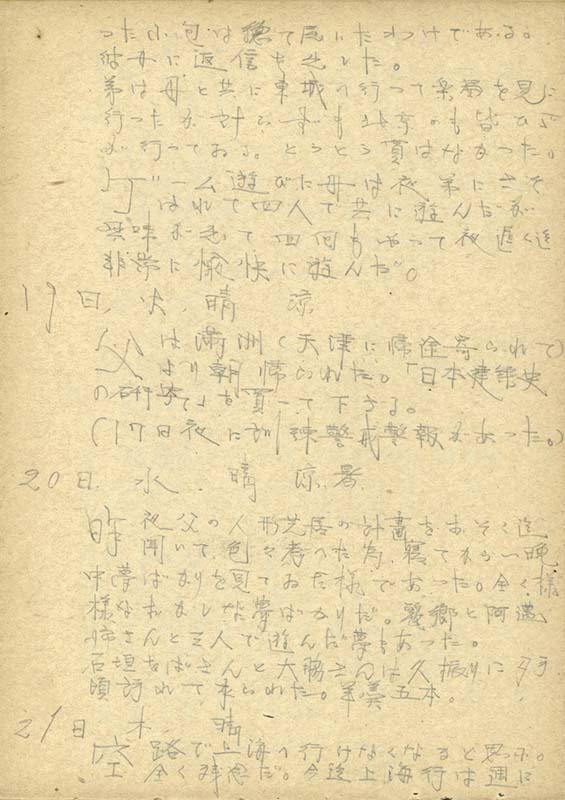 った小包は て居たわけである。
に返信を出した。
弟は母と共に東城 行って楽器を見に
行ったが も も皆
が行っておる。とうとう買はなかった。
ゲーム遊びに母は夜、弟にさそ
はれて四人で共に遊んだが
興味が出て四回もやって夜遅く迄
非常に愉快に遊んだ。
19日、火、晴 涼
父は満洲(天津に帰途寄られて)
より朝帰られた。「日本建築史
の研究」を買って下さる。
(17日夜に訓練警戒警報があった。)
20日、水、晴 涼、暑
昨夜父の人形芝居の計画をおそく迄
聞いて、色々考へた為、寝てから一晩
中夢ばかりを見ておた様であった。全く様
様なおかしな夢ばかりだ。 と
姉さんと三人で遊んだ夢もあった。
石垣をばさんと大 さんは久振りに夕
頃訪れて来られた。羊羹五本。
21日 木 晴
空路で上海へ行けなくなると思ふ。
全く残念だ。今迄上海行は週に